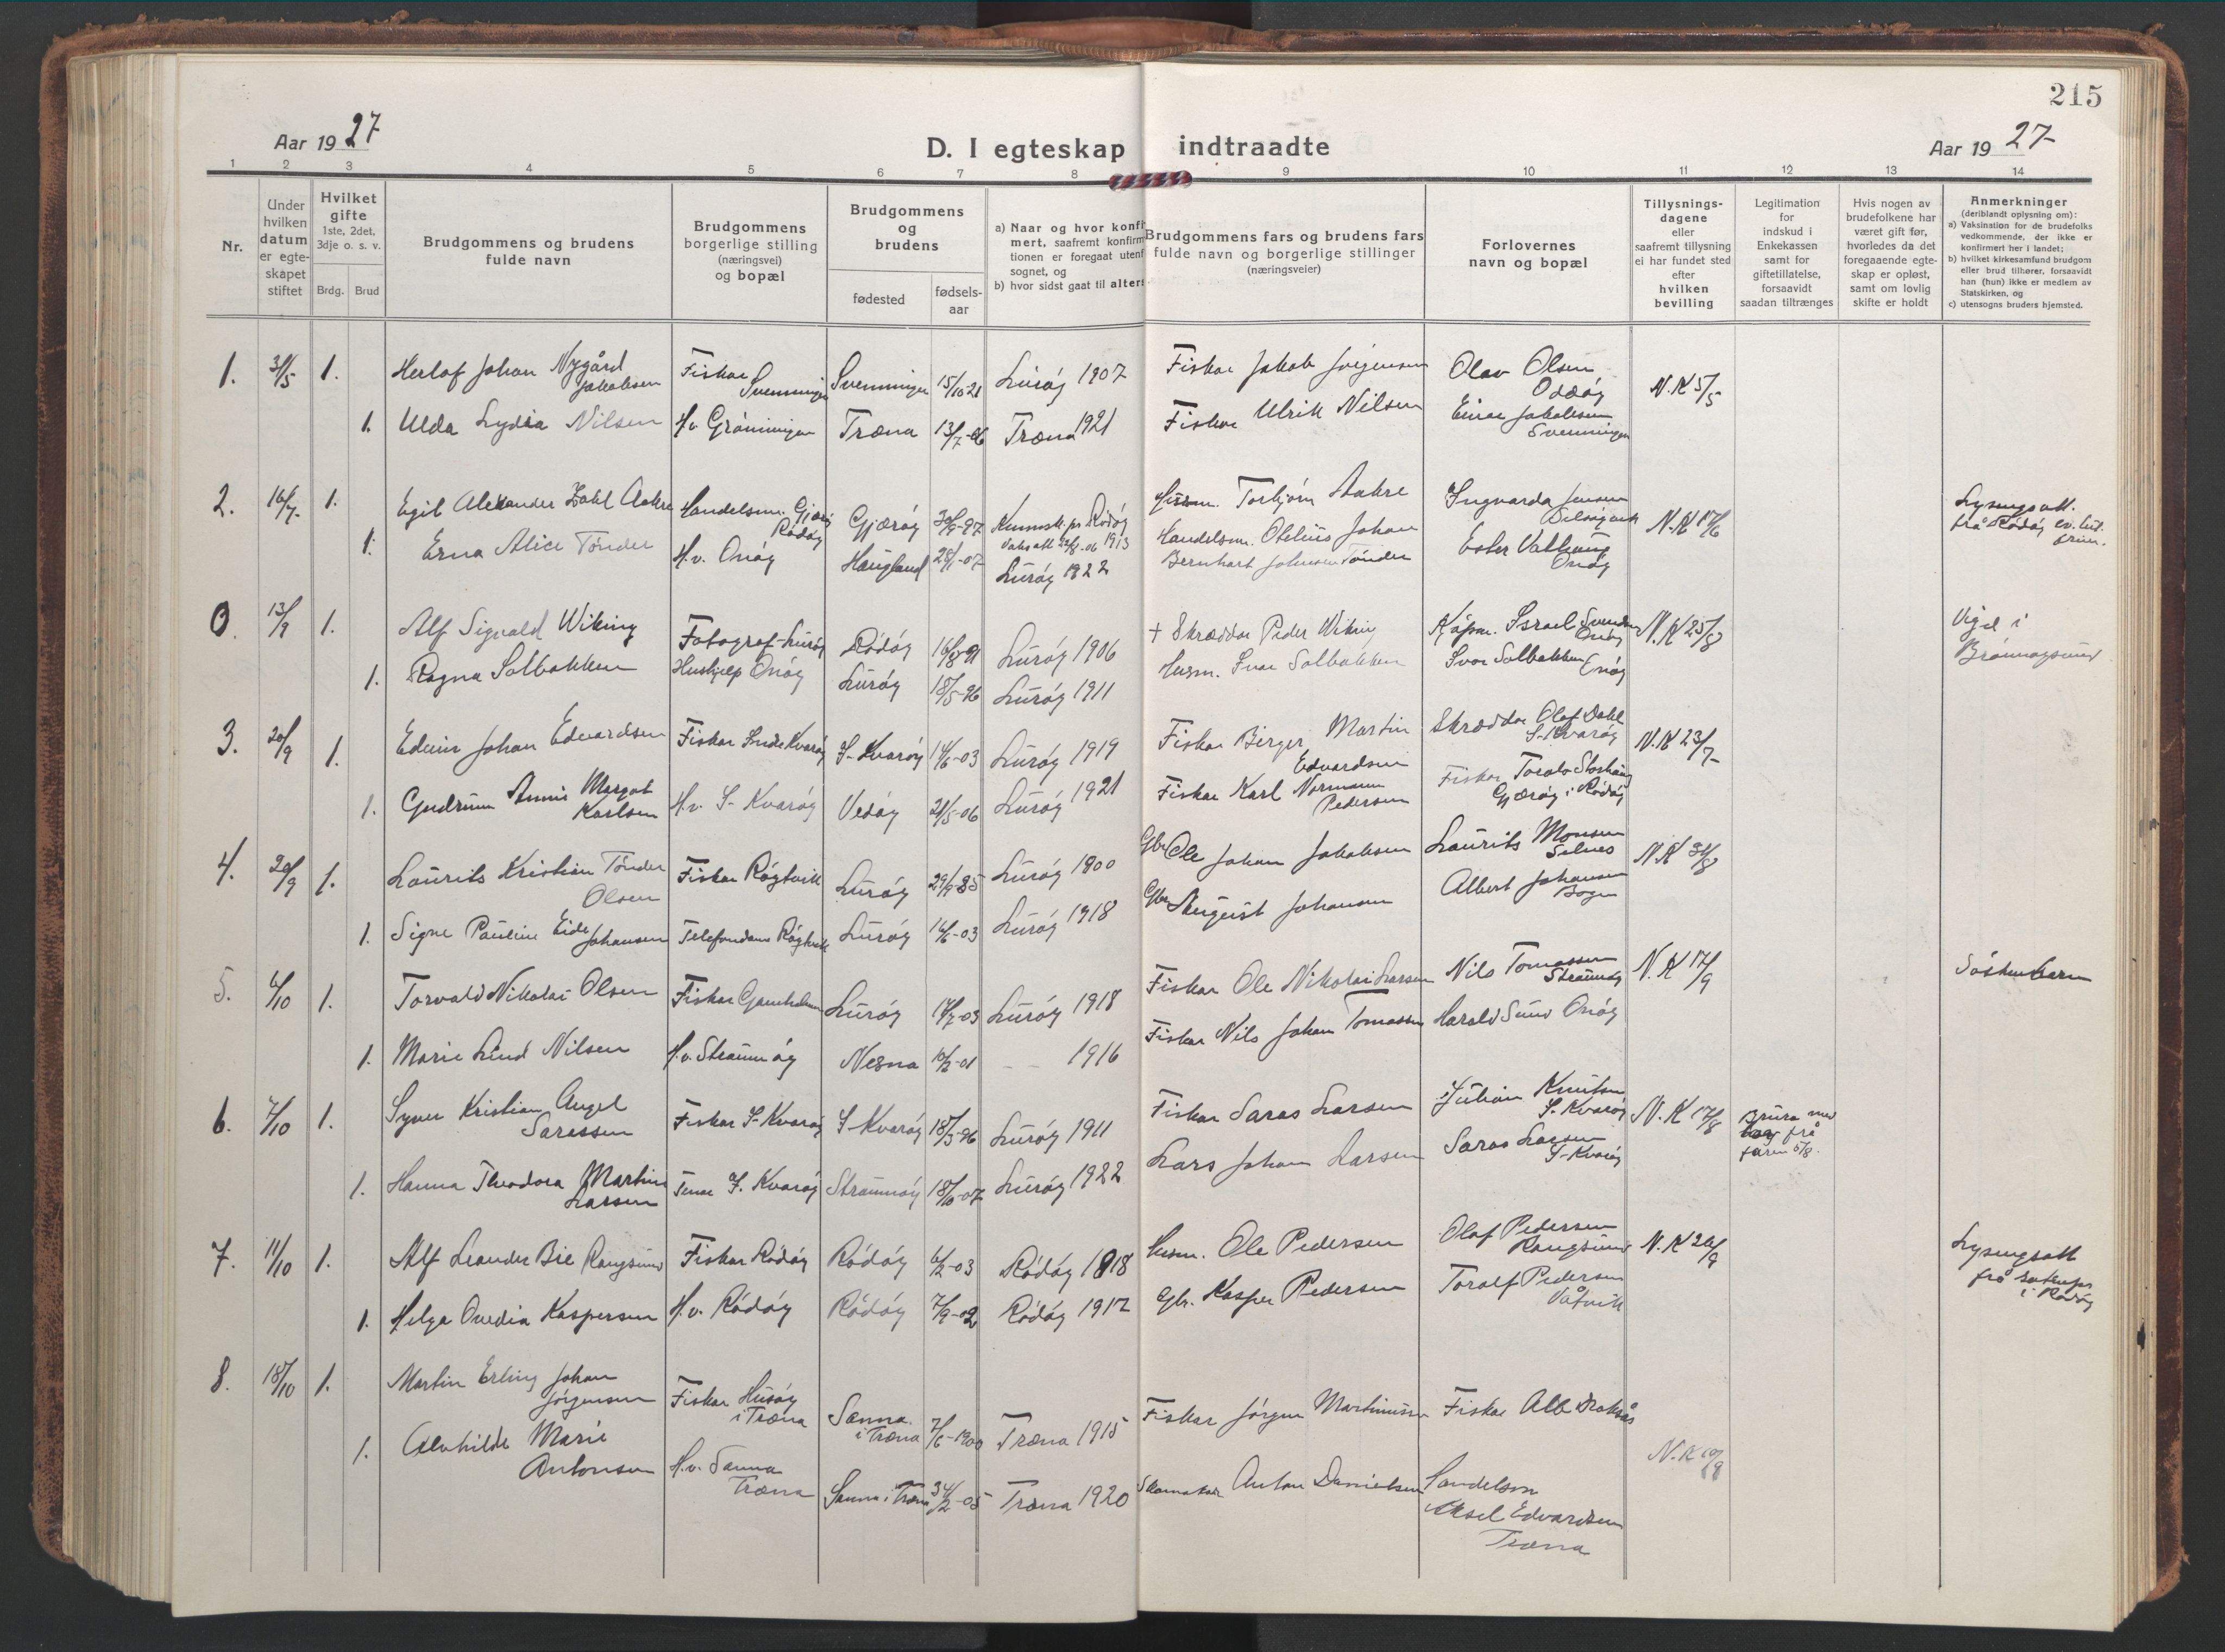 215
Aar 1927
D. I egteskap indtraadte
Aar 1927
1 2 3 4 5 6 7 8 9 10 11 12 13 14
Nr.
Under hvilken datum er egte-skapet stiftet
Hvilket gifte 1ste, 2det, 3dje o. s. v.
Brdg. Brud
Brudgommens og brudens fulde navn
Brudgommens borgerlige stilling (næringsvei) og bopæl
Brudgommens og brudens
fødested
fødsels-aar
a) Naar og hvor konfi
mert, saafremt konfirm
tionen er foregaat utenf
sognet, og
b) hvor sidst gaat til alters
Brudgommens fars og brudens fars
fulde navn og borgerlige stillinger
(næringsveier)
Forlovernes
navn og bopæl
Tillysnings-
dagene
eller
saafremt tillysning
ei har fundet sted
efter
hvilken
bevilling
Legitimation
for
indskud i
Enkekassen
samt for
giftetillatelse,
forsaavidt
saadan tiltrænges
Hvis nogen av
brudefolkene har
været gift før,
hvorledes da det
foregaaende egte-
skap er opløst,
samt om lovlig
skifte er holdt
Anmerkninger
(deriblandt oplysning om):
a) Vaksination for de brudefolks
vedkommende, der ikke er
konfirmert her i landet;
b) hvilket kirkesamfund brudgom
eller brud tilhører, forsaavidt
han (hun) ikke er medlem av
Statskirken, og
c) utensogns bruders hjemsted.
1. 31/5 1. Herlof Johan Nygård Jakobsen Fiskar Svenningen Svenningen Lurøy 1907 Fiskar Jakob Jørgensen Olav Olsen N.K 5/5
1. Ulda Lydia Nilsen H.v Grønningen Træna 13/7-06 Træna 1921 Fiskar Ulrik Nilsen Einar Jakobsen Svenningen
2. 16/7 1. Egil Alexander Dahl Aakre Handelsm. Gjærøy Rødøy Gjærøy 30/9-97 Rødøy 1913 Husm. Torbjørn Aakre Ingvarda Jensen N.K 17/6 Lysingsatt. frå Rødøy
1. Erna Alice Tønder H.v. Onøy Haugland 28/1-07 Lurøy 1922 Handelsm. Otelius Johan Bernhart Johnsen Tønder Ester Onøy
0. 13/9 1. Alf Sigvald Wiking Fotograf Lurøy Rødøy 16/8-91 Lurøy 1906 + Skræddar Peder Wiking Kjøpm. Israel Svendsen Onøy N.K 25/8 Vigd i Brønnøysund
1. Ragna Solbakken Hushjelp Onøy Lurøy 18/5-96 Lurøy 1911 Husm. Ivar Solbakken Ivar Solbakken Onøy
3. 20/9 1. Edvin Johan Edvardsen Fiskar Indre Kvarøy I-Kvarøy 14/6-03 Lurøy 1919 Fiskar Birger Martin Edvardsen Skræddar Olaf Dahl I-Kvarøy N.K 23/7
1. Gudrun Annie Margot Karlsen H.v. I-Kvarøy Vedøy 21/5-06 Lurøy 1921 Fiskar Karl Normann Pedersen Fiskar Toralv Gjærøy i Rødøy
4. 20/9 1. Laurits Kristian Tønder Olsen Fiskar Røytvik Lurøy 29/9-85 Lurøy 1900 Gbr Ole Johan Jakobsen Laurits Monsen Selnes N.K 31/8
1. Signe Pauline Eide Johansen Telefondame Røytvik Lurøy 16/6-03 Lurøy 1918 Gbr August Johansen Albert Johansen Bogen
5. 6/10 1. Torvald Nikolai Olsen Fiskar Lurøy 14/7-03 Lurøy 1918 Fiskar Ole Nikolai Larsen Nils Tomassen Straumøy N.K 17/9 Søskenbarn
1. Marie Lind Nilsen H.v. Straumøy Nesna 10/2-01 - - 1916 Fiskar Nils Johan Tomassen Harald Sund Onøy
6. 7/10 1. Syver Kristian Angel Sarassen Fiskar I-Kvarøy I-Kvarøy 18/3-96 Lurøy 1911 Fiskar Saras Larsen Julian Knutsen I-Kvarøy N.K 17/8 Brura med frå faren 5/8.
1. Hanna Theodora Martine Larsen Tenar I. Kvarøy Straumøy 18/10-07 Lurøy 1922 Lars Johan Larsen Saras Larsen I-Kvarøy
7. 11/10 1. Alf Leander Bie Rangsund Fiskar Rødøy Rødøy 6/2-03 Rødøy 1918 Husm. Ole Pedersen Olaf Pedersen Rangsund N.K 20/9 Lysingsatt frå i Rødøy
1. Helga Ovedia Kaspersen H.v. Rødøy Rødøy 7/9-02 Rødøy 1917 Gbr. Kasper Pedersen Toralf Pedersen Våtvik
8. 18/10 1. Martin Erling Johan Jørgensen Fiskar Husøy i Træna Sanna i Træna 7/6-1900 Træna 1915 Fiskar Jørgen Martinussen Fiskar Alb
1. Alvhilde Marie Antonsen H.v. Sanna Træna Sanna i Træna Træna 1920 Skomakar Anton Danielsen Handelsm Aksel Edvardsen Træna N.K 19/9